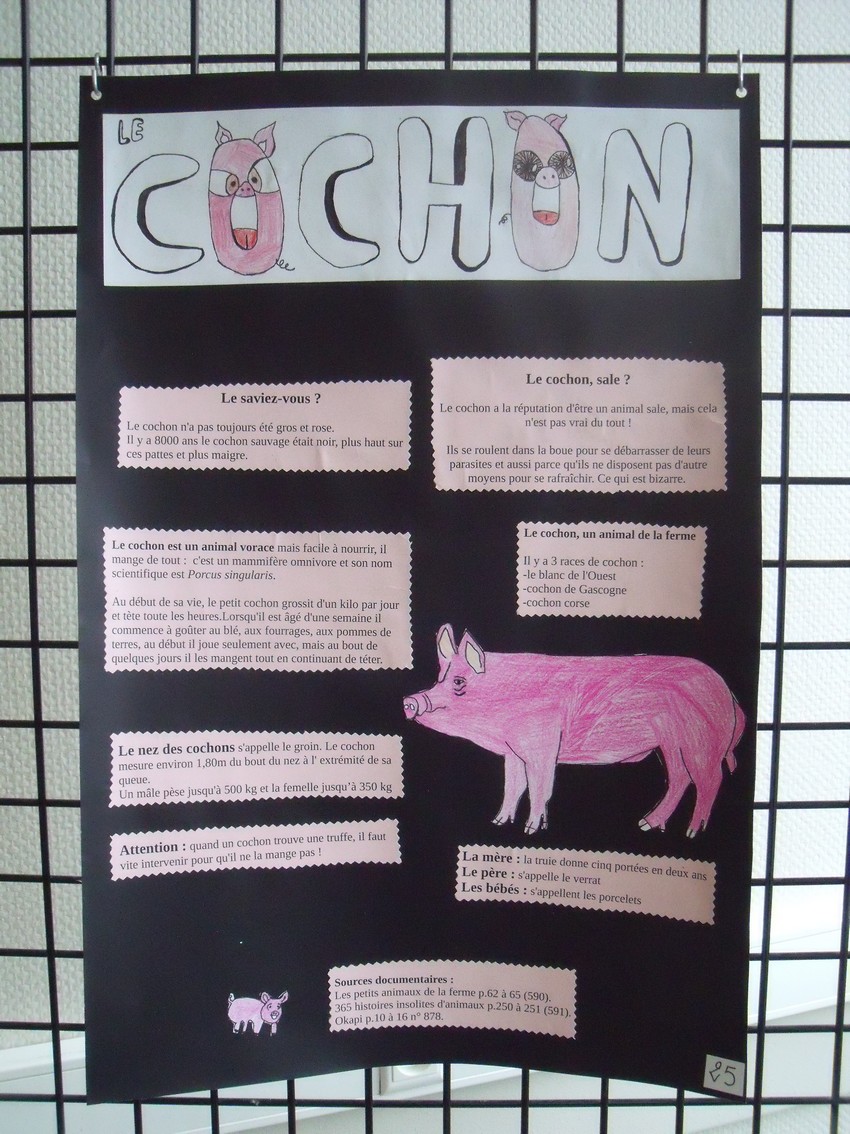 LE
COCHON
Le saviez-vous ?
Le cochon n'a pas toujours été gros et rose.
Il y a 8000 ans le cochon sauvage était noir, plus haut sur
ces pattes et plus maigre.
Le cochon, sale ?
Le cochon a la réputation d'être un animal sale, mais cela
n'est pas vrai du tout !
Ils se roulent dans la boue pour se débarrasser de leurs
parasites et aussi parce qu'ils ne disposent pas d'autre
moyens pour se rafraîchir. Ce qui est bizarre.
Le cochon est un animal vorace mais facile à nourrir, il
mange de tout : c'est un mammifère omnivore et son nom
scientifique est Porcus singularis.
Au début de sa vie, le petit cochon grossit d'un kilo par jour
et tète toute les heures.Lorsqu'il est âgé d'une semaine il
commence à goûter au blé, aux fourrages, aux pommes de
terres, au début il joue seulement avec, mais au bout de
quelques jours il les mangent tout en continuant de téter.
Le cochon, un animal de la ferme
Il y a 3 races de cochon :
-le blanc de l'Ouest
-cochon de Gascogne
-cochon corse
Le nez des cochons s'appelle le groin. Le cochon
mesure environ 1,80m du bout du nez à l' extrémité de sa
queue.
Un mâle pèse jusqu'à 500 kg et la femelle jusqu'à 350 kg
Attention : quand un cochon trouve une truffe, il faut
vite intervenir pour qu'il ne la mange pas !
La mère : la truie donne cinq portées en deux ans
Le père : s'appelle le verrat
Les bébés : s'appellent les porcelets
Sources documentaires :
Les petits animaux de la ferme p.62 à 65 (590).
365 histoires insolites d'animaux p.250 à 251 (591).
Okapi p.10 à 16 n° 878.
25